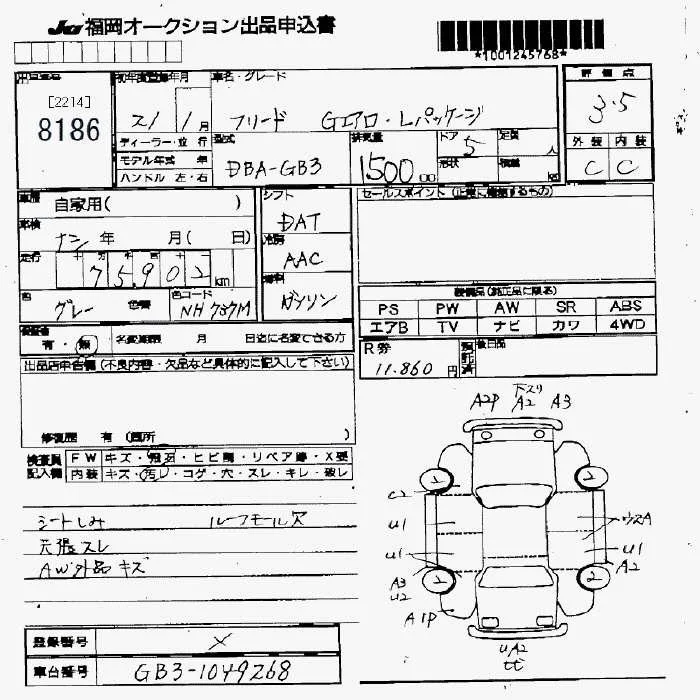 JU 福岡オークション出品申込書
*1001245768*
出品番号
[2214]
8186
初年度登録年月
21 1月
車名・グレード
フリード Gエアロ・Lパッケージ
評価点
3.5
外装 内装
C C
ディーラー・並行
モデル年式 年
ハンドル 左・右
型式
DBA-GB3
排気量
1500 cc
ドア
5
定員
人
形状
積載
kg
車歴
自家用( )
車検
ナシ 年 月( 日)
走行
十 万 千 百 十 一
75,902 km
色
グレー
色替
色コード
NH787M
シフト
DAT
冷房
AAC
燃料
ガソリン
セールスポイント(正常に機能するもの)
装備品(純正品に限る)
PS PW AW SR ABS
エアB TV ナビ カワ 4WD
有・無
名変期限 月 日迄に名変できる方
R券
11,860円
後日品
出品店申告欄(不良内容・欠品など具体的に記入して下さい)
修復歴 有(箇所 )
検査員
記入欄
FW キズ・飛石・ヒビ割・リペア跡・X要
内装 キズ・汚レ・コゲ・穴・スレ・キレ・破レ
シートしみ ルーフモール欠
天張スレ
AW外品キズ
A2P 下スリ A2 A3
2 2
C2
U1 ウスA
U1 U1
A3 A2
U2
2 2
A1P
UA2
登録番号 ×
車台番号 GB3-1049268